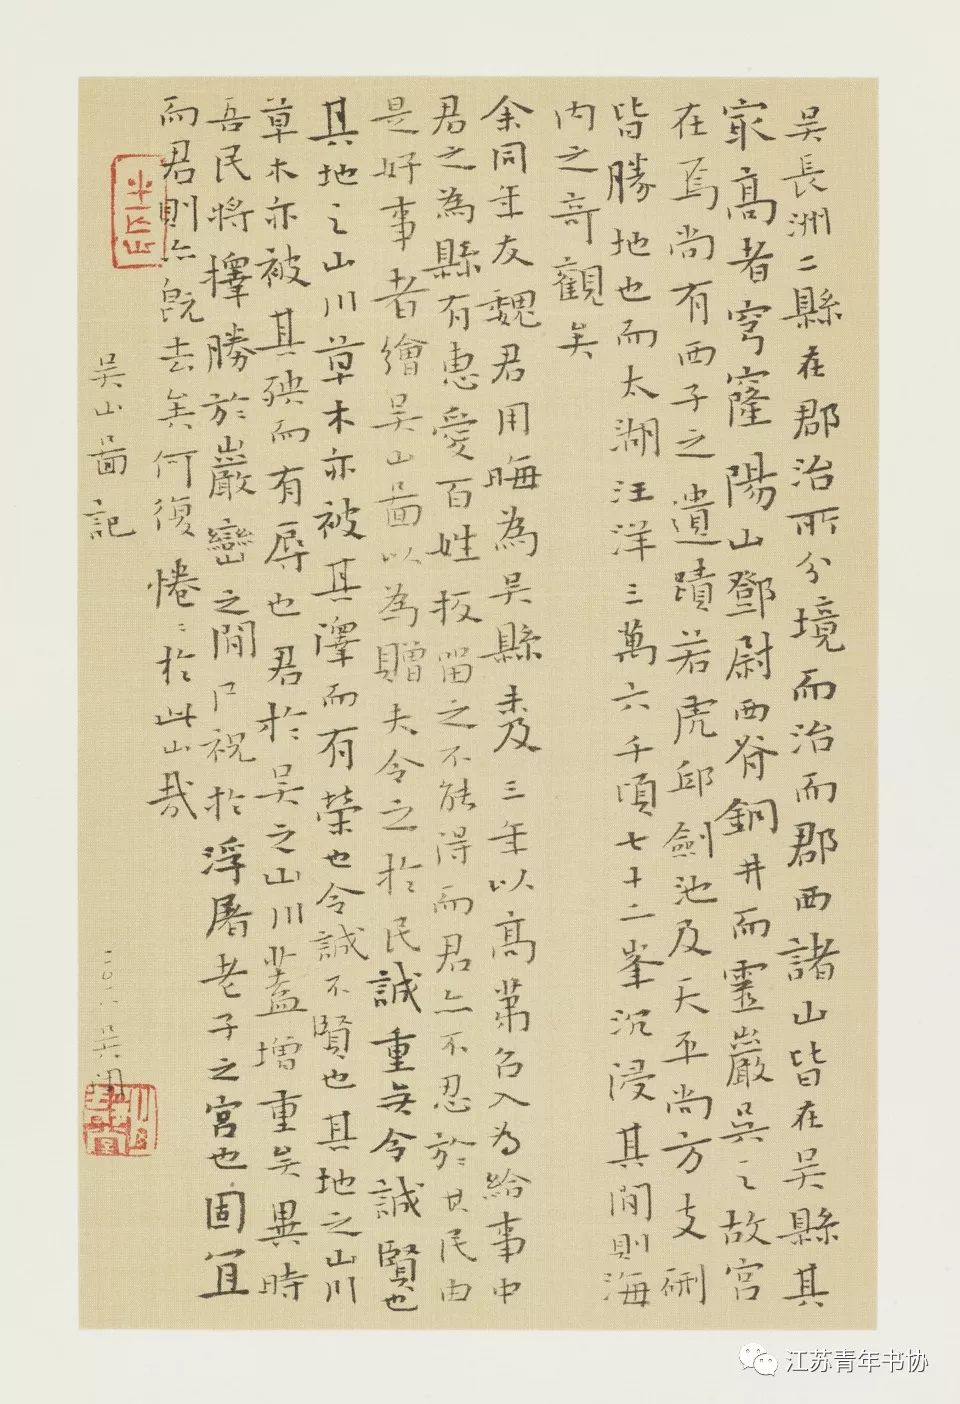 吳長洲二縣在郡治所分境而治而郡西諸山皆在吳縣其
冣高者穹窿陽山鄧尉西脊銅井而靈巖吳之故宮
在焉尚有西子之遺蹟若虎邱劍池及天平尚方支硎
皆勝地也而太湖汪洋三萬六千頃七十二峯沉浸其間則海
內之奇觀矣
余同年友魏君用晦為吳縣未及三年以高第召入為給事中
君之為縣有惠愛百姓扳留之不能得而君亦不忍於其民由
是好事者繪吳山啚以為贈夫令之於民誠重矣令誠賢也
其地之山川草木亦被其澤而有榮也令誠不賢也其地之山川
草木亦被其殃而有辱也君於吳之山川蓋增重矣異時
吾民將擇勝於巖巒之間尸祝於浮屠老子之宮也固宜
而君則亦既去矣何復惓〻於此山哉
吳山啚記
二〇一八吳
江苏青年书协